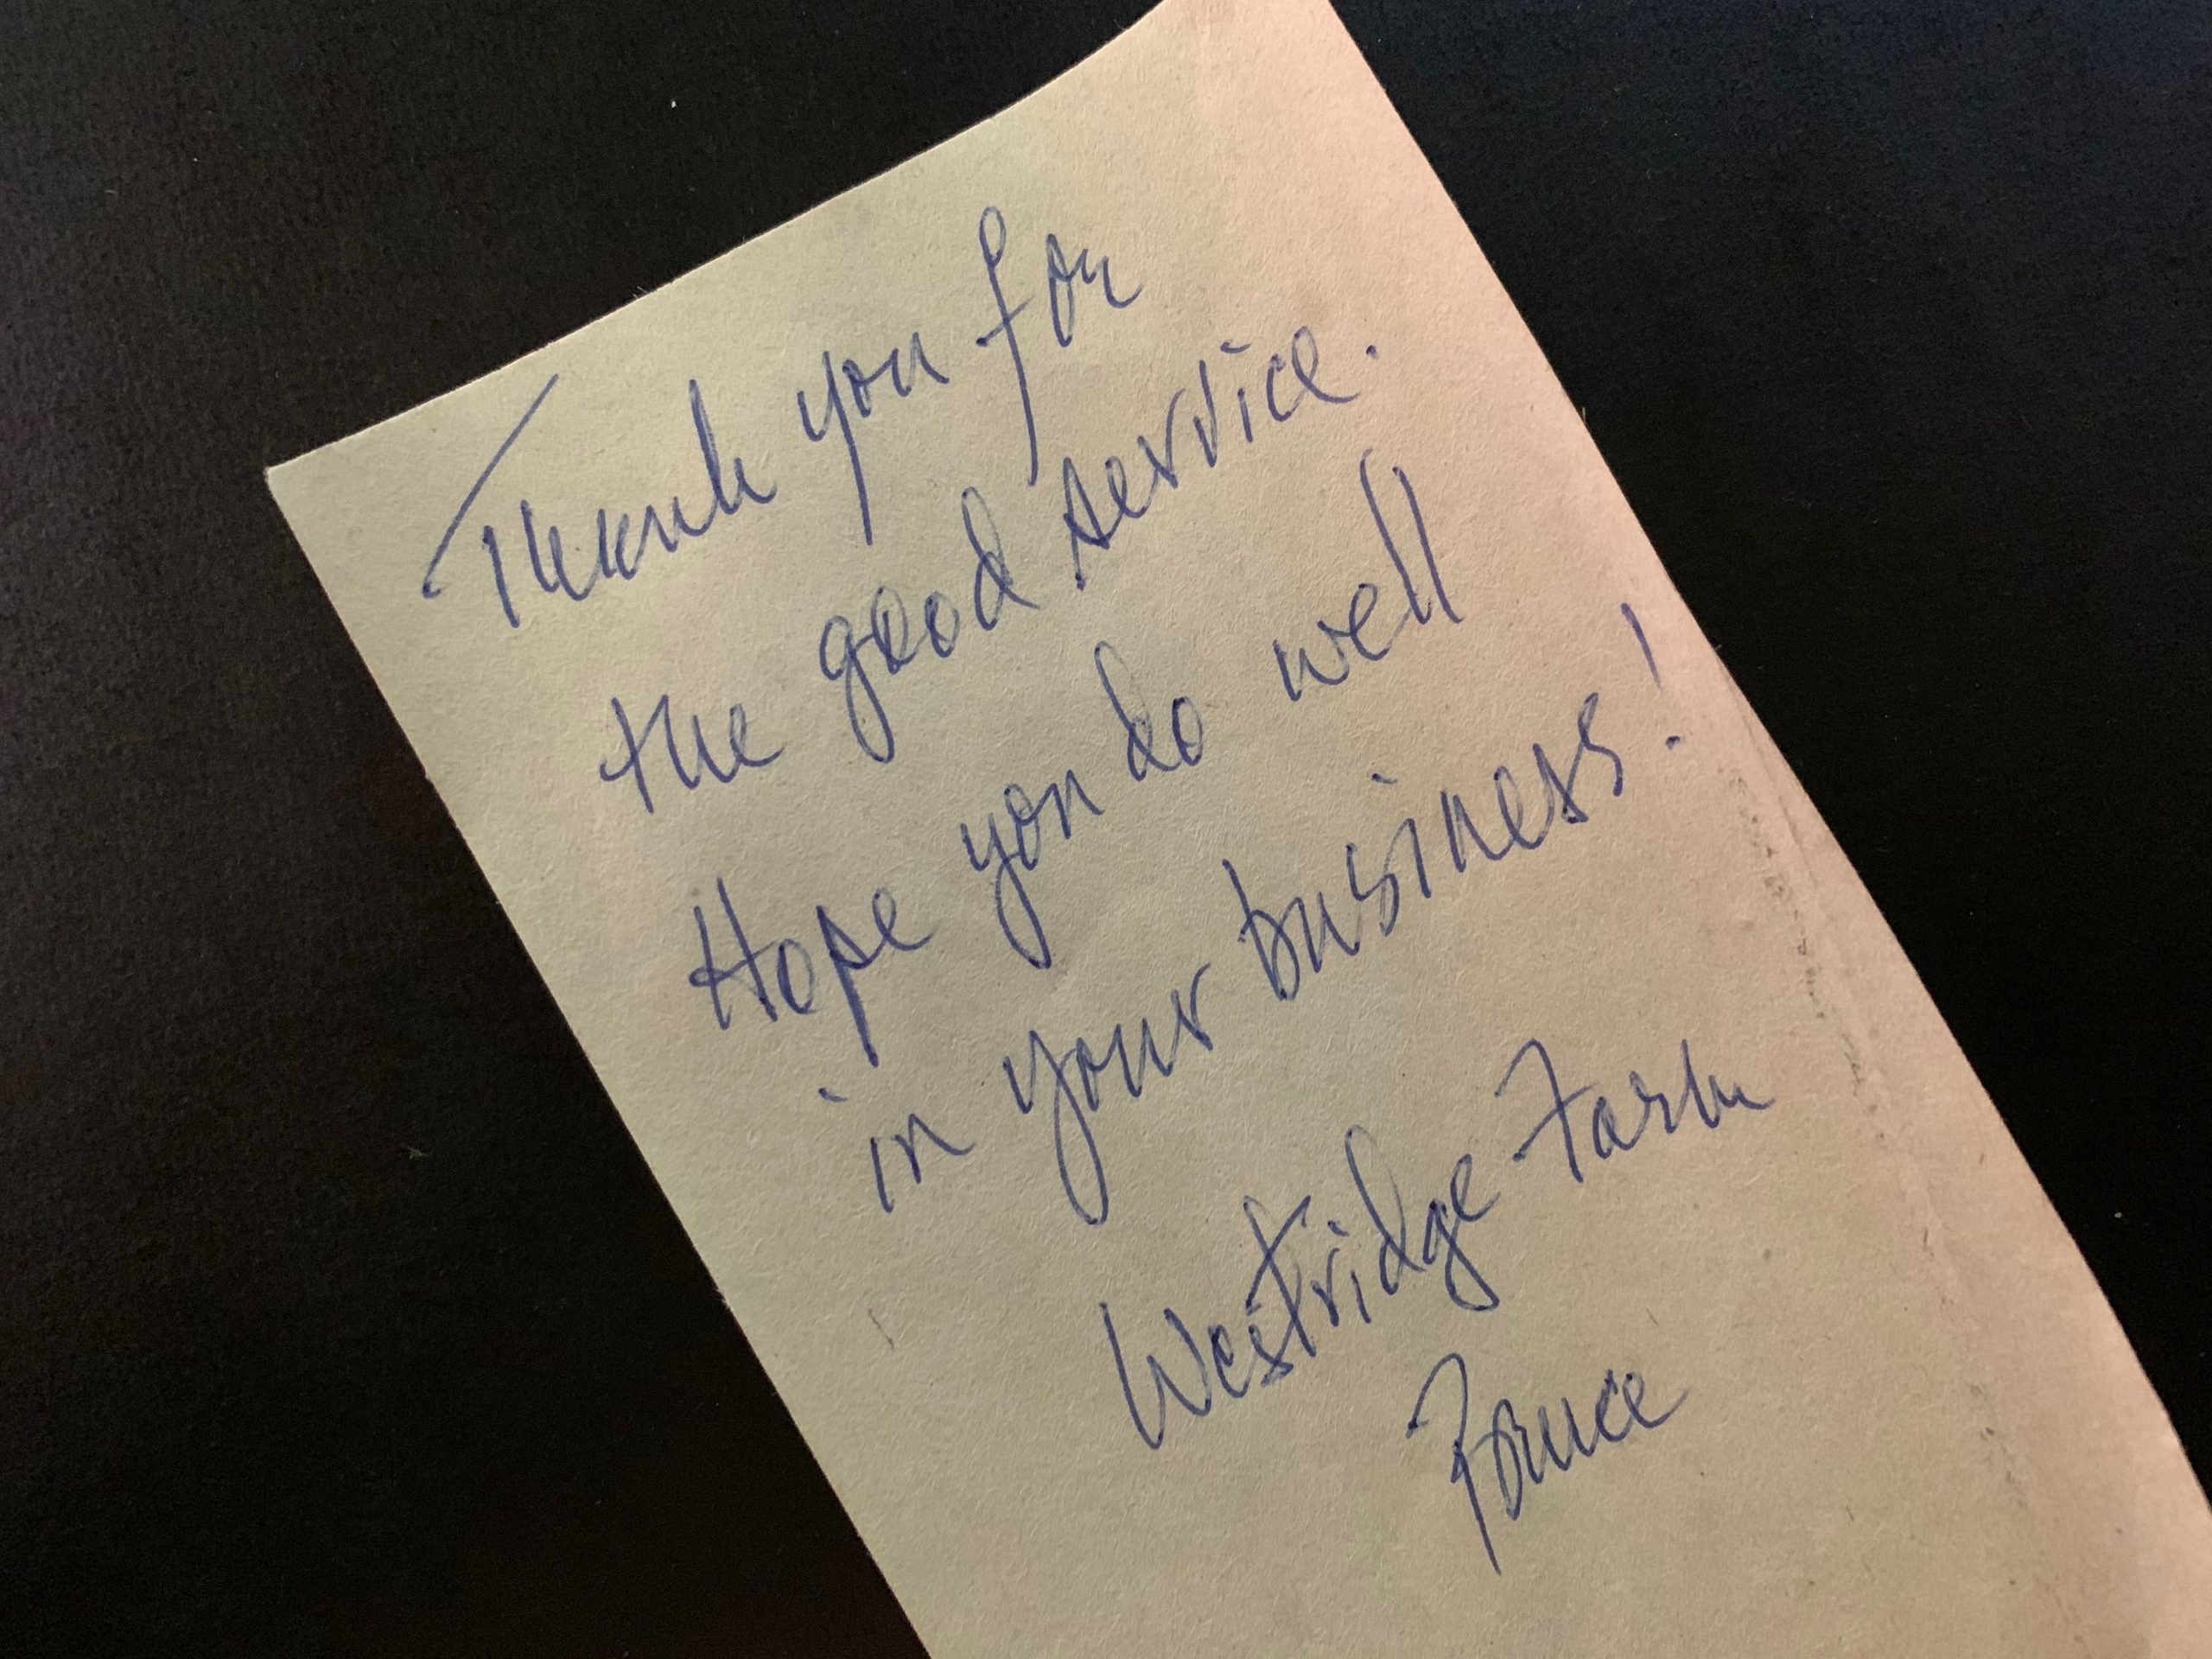 Thank you for
the good service.
Hope you do well
in your business!
Westridge Farm
Bruce